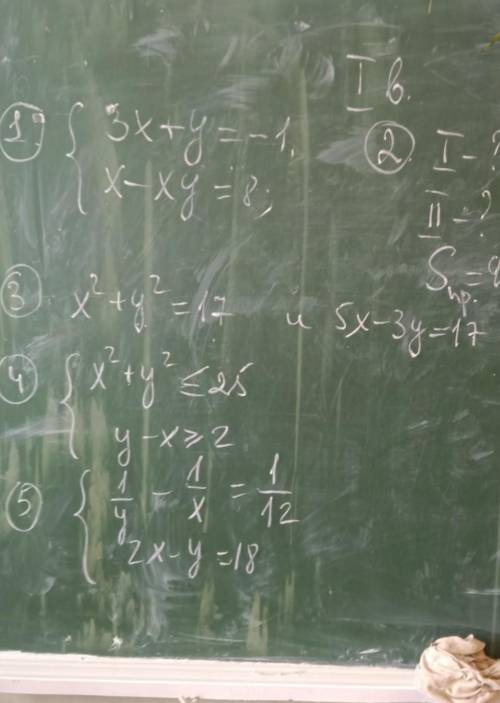 I в.
① { 3x + y = -1,
x - xy = 8;
② I - ?
II - ?
Sпр. =
③ x² + y² = 17 и 5x - 3y = 17
④ { x² + y² ≤ 25
y - x ≥ 2
⑤ { 1/y - 1/x = 1/12
2x - y = 18